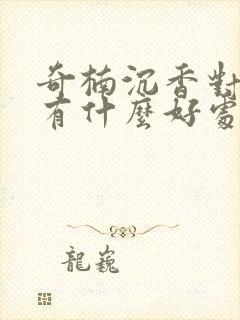 奇楠沉香對
有什麼好處
龍巍